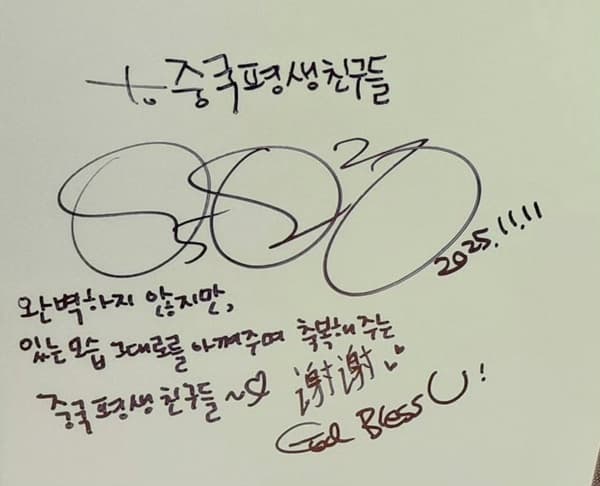 to. 중국평생친구들
2025.11.11
완벽하지 않지만,
있는 모습 그대로를 아껴주며 축복해 주는
중국평생친구들~♡ 谢谢♥
God Bless U!